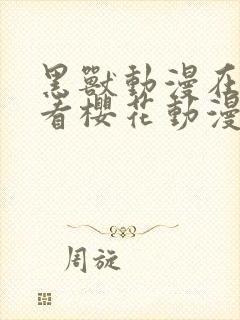 黑獸動漫在
看櫻花動漫
周旋